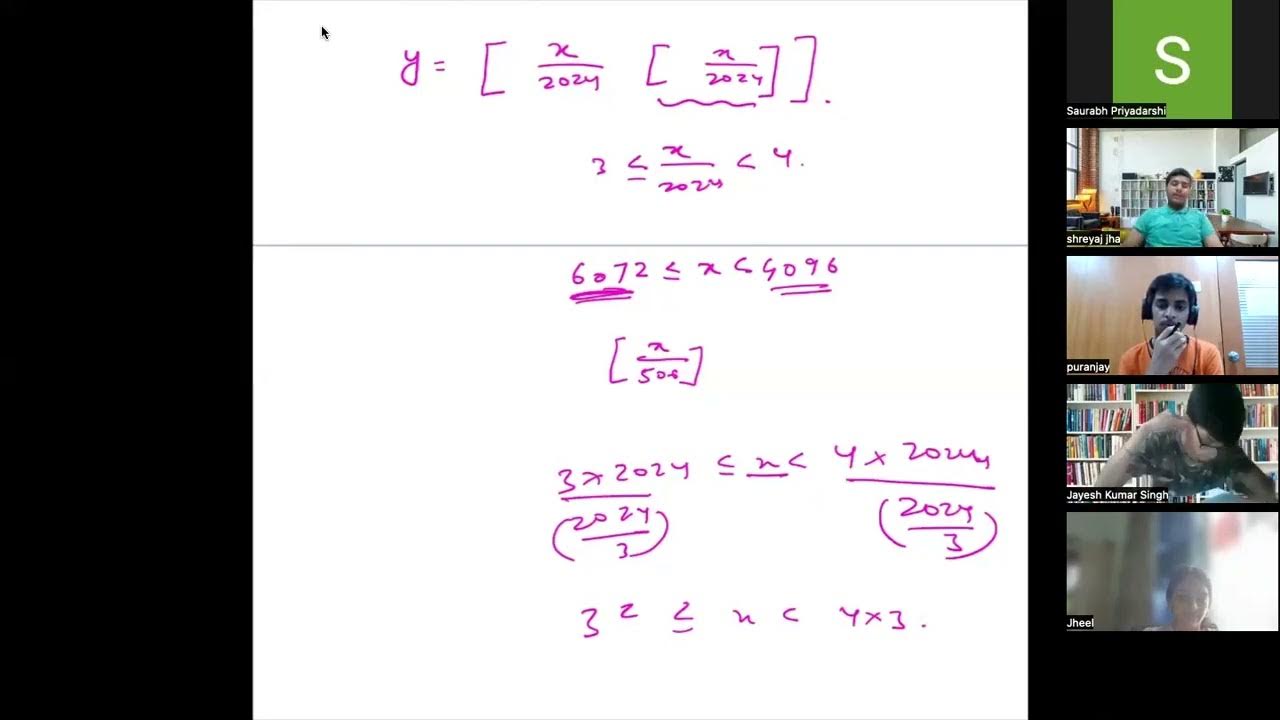 y = [ x/2024 [ x/2024 ] ].
3 ≤ x/2024 < 4.
6072 ≤ x < 4096
[ x/506 ]
3 × 2024 / (2024/3) ≤ x < 4 × 2024 / (2024/3)
3² ≤ x < 4×3.
S
Saurabh Priyadarshi
shreyaj jha
puranjay
Jayesh Kumar Singh
Jheel